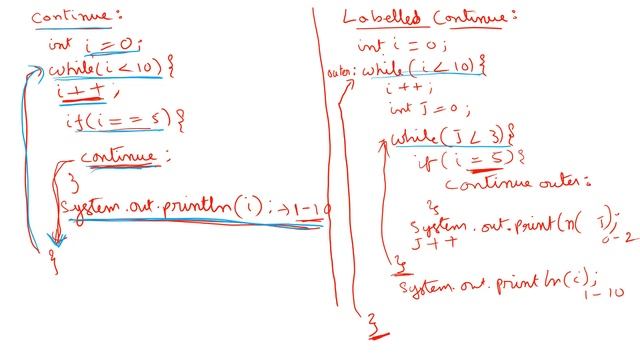 Continue:
int i = 0;
while(i < 10) {
i++;
if(i == 5) {
continue:
}
System.out.println(i); → 1-10
}
Labelled Continue:
int i = 0;
outer: while(i < 10) {
i++;
int J = 0;
while(J < 3) {
if(i = 5) {
Continue outer:
}
System.out.print(n( I);
0-2
J++
}
System.out.println(i);
1-10
}